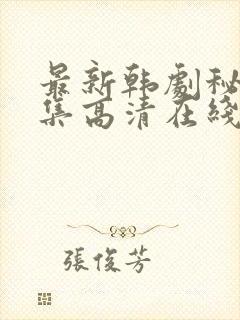 最新韩劇秘
集高清在綫
張俊芳